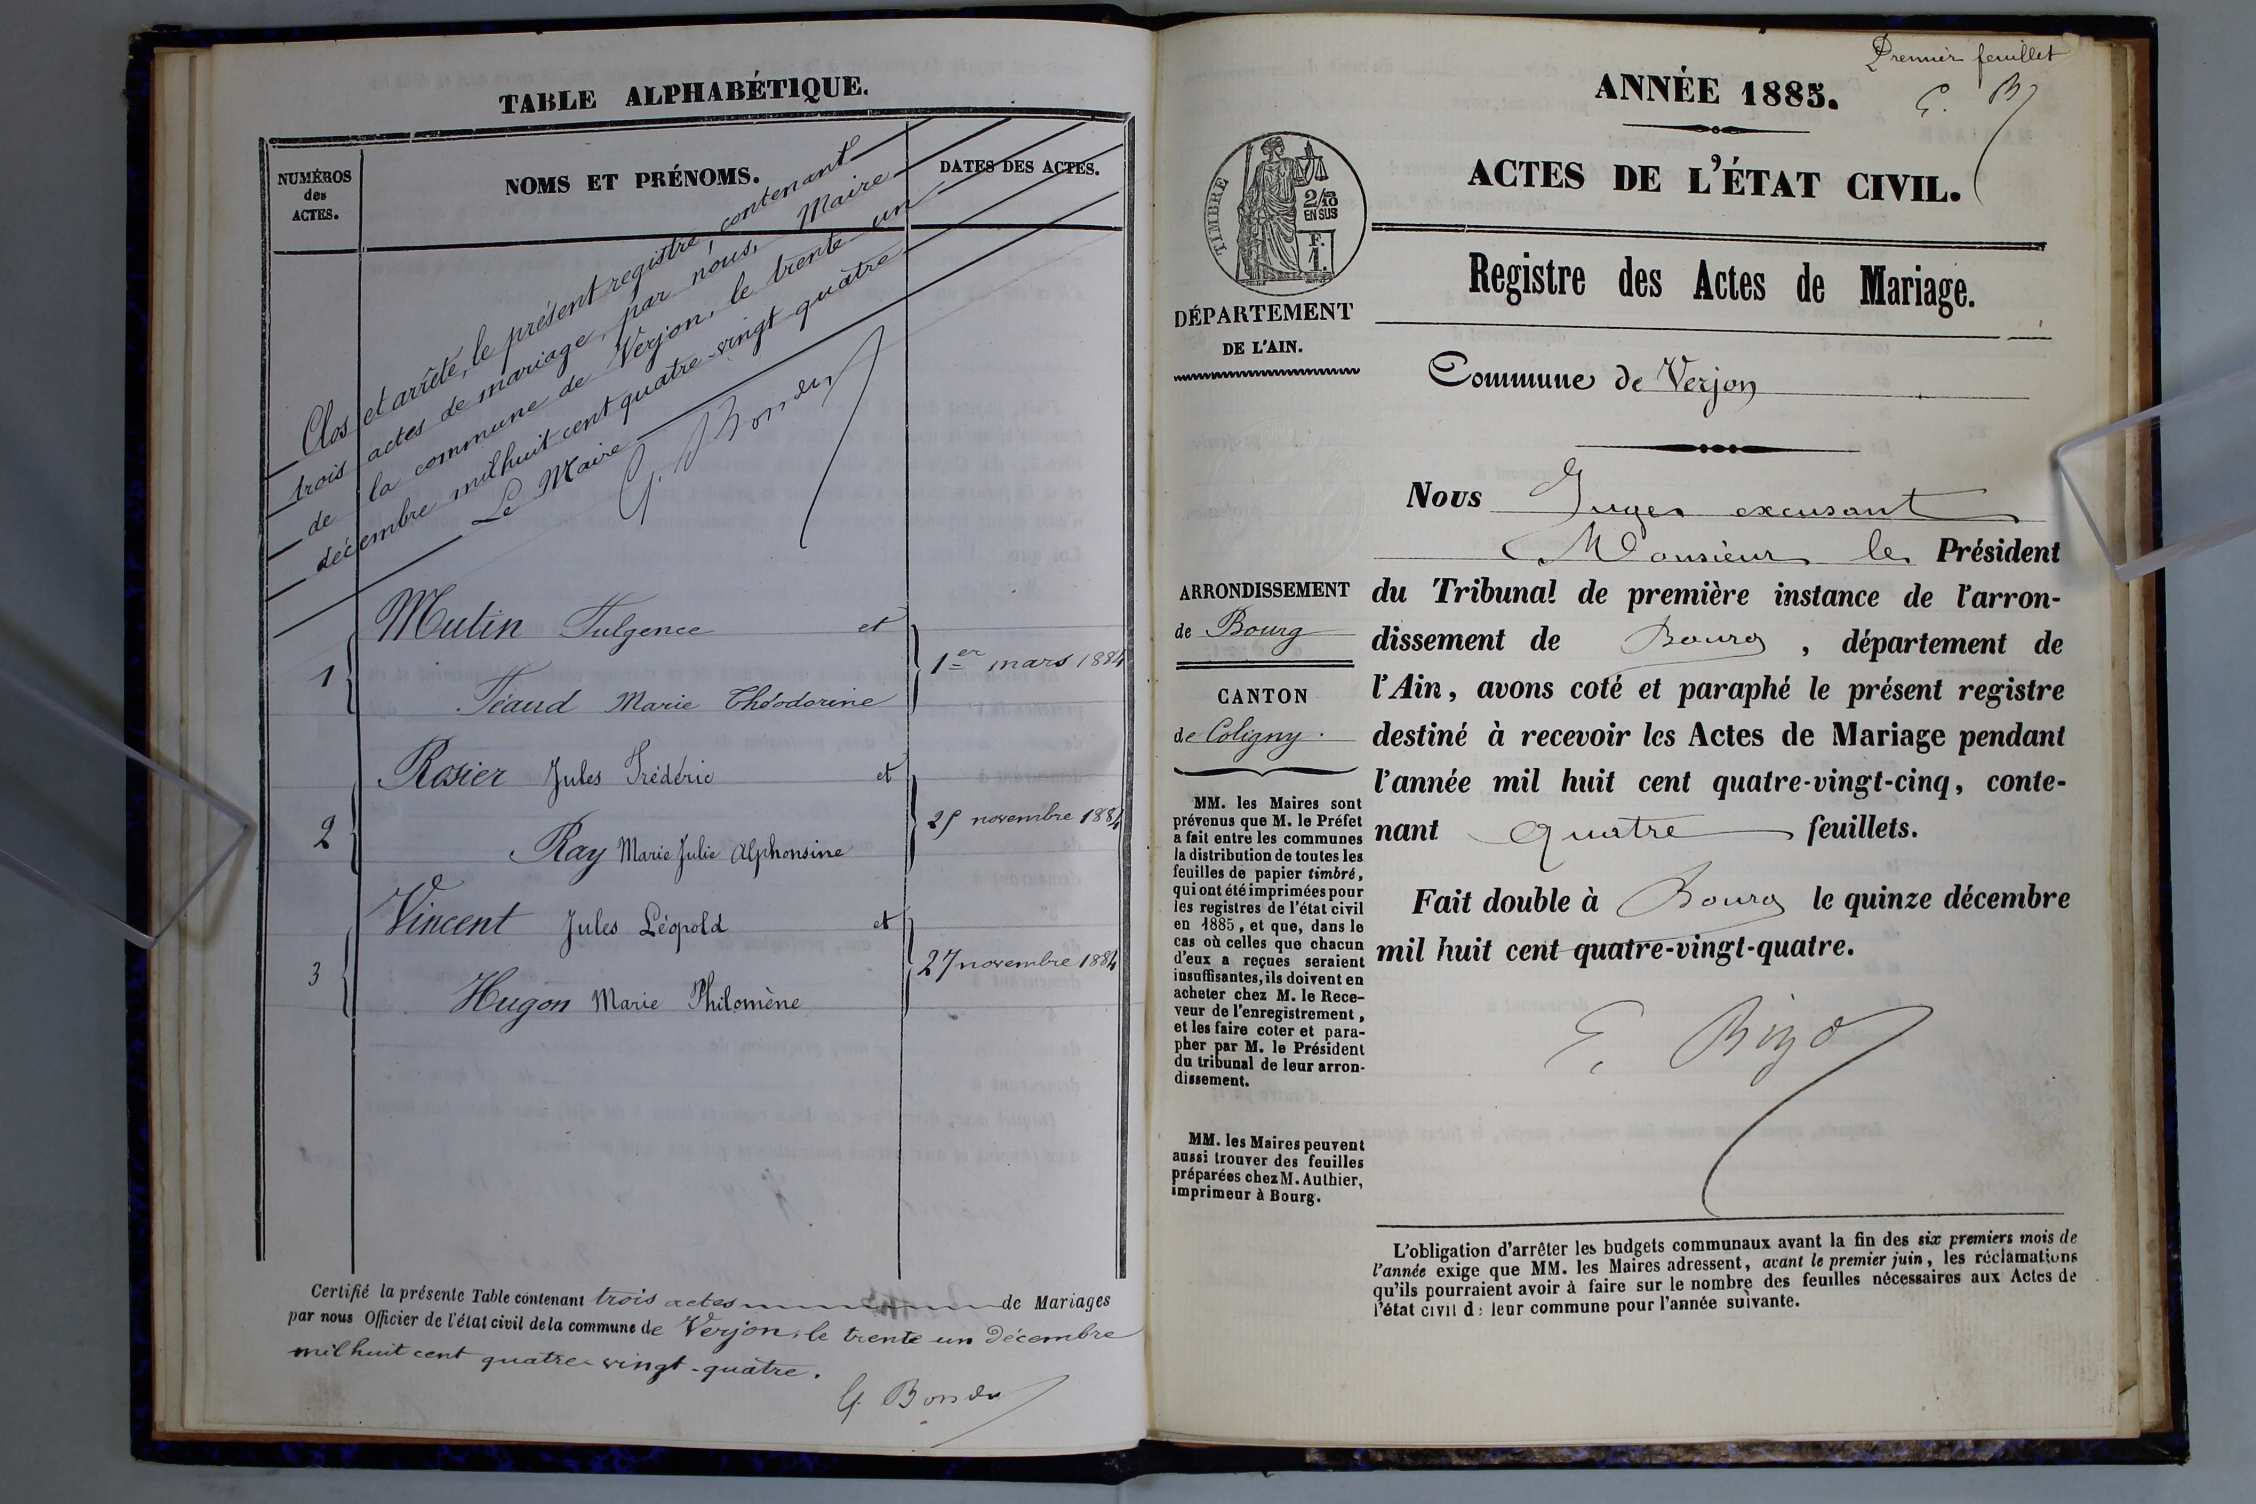 TABLE ALPHABÉTIQUE.
NUMÉROS
des
ACTES.
NOMS ET PRÉNOMS.
DATES DES ACTES.
Clos et arrêté, le présent registre, contenant
trois actes de mariage, par nous, Maire
de la commune de Verjon, le trente un
décembre mil huit cent quatre-vingt quatre
Le Maire
G. Bondu
1
Mutin Fulgence et
Féaud Marie Théodorine
1er mars 1884
2
Rosier Jules Frédéric et
Ray Marie Julie Alphonsine
novembre 1884
3
Vincent Jules Léopold et
Hugon Marie Philomène
27 novembre 1884
Certifié la présente Table contenant trois actes de Mariages
par nous Officier de l'état civil de la commune de Verjon, le trente un Décembre
mil huit cent quatre-vingt-quatre.
G. Bondu
Premier feuillet
E. B
ANNÉE 1885.
ACTES DE L'ÉTAT CIVIL.
TIMBRE
2/10
EN SUS
F.
1.
DÉPARTEMENT
DE L'AIN.
Registre des Actes de Mariage.
Commune de Verjon
ARRONDISSEMENT
de Bourg
CANTON
de Coligny.
MM. les Maires sont
prévenus que M. le Préfet
a fait entre les communes
la distribution de toutes les
feuilles de papier timbré,
qui ont été imprimées pour
les registres de l'état civil
en 1885, et que, dans le
cas où celles que chacun
d'eux a reçues seraient
insuffisantes, ils doivent en
acheter chez M. le Rece-
veur de l'enregistrement,
et les faire coter et para-
pher par M. le Président
du tribunal de leur arron-
dissement.
MM. les Maires peuvent
aussi trouver des feuilles
préparées chez M. Authier,
imprimeur à Bourg.
Nous Juge excusant
Monsieur le Président
du Tribunal de première instance de l'arron-
dissement de Bourg, département de
l'Ain, avons coté et paraphé le présent registre
destiné à recevoir les Actes de Mariage pendant
l'année mil huit cent quatre-vingt-cinq, conte-
nant quatre feuillets.
Fait double à Bourg le quinze décembre
mil huit cent quatre-vingt-quatre.
L'obligation d'arrêter les budgets communaux avant la fin des six premiers mois de
l'année exige que MM. les Maires adressent, avant le premier juin, les réclamations
qu'ils pourraient avoir à faire sur le nombre des feuilles nécessaires aux Actes de
l'état civil d: leur commune pour l'année suivante.